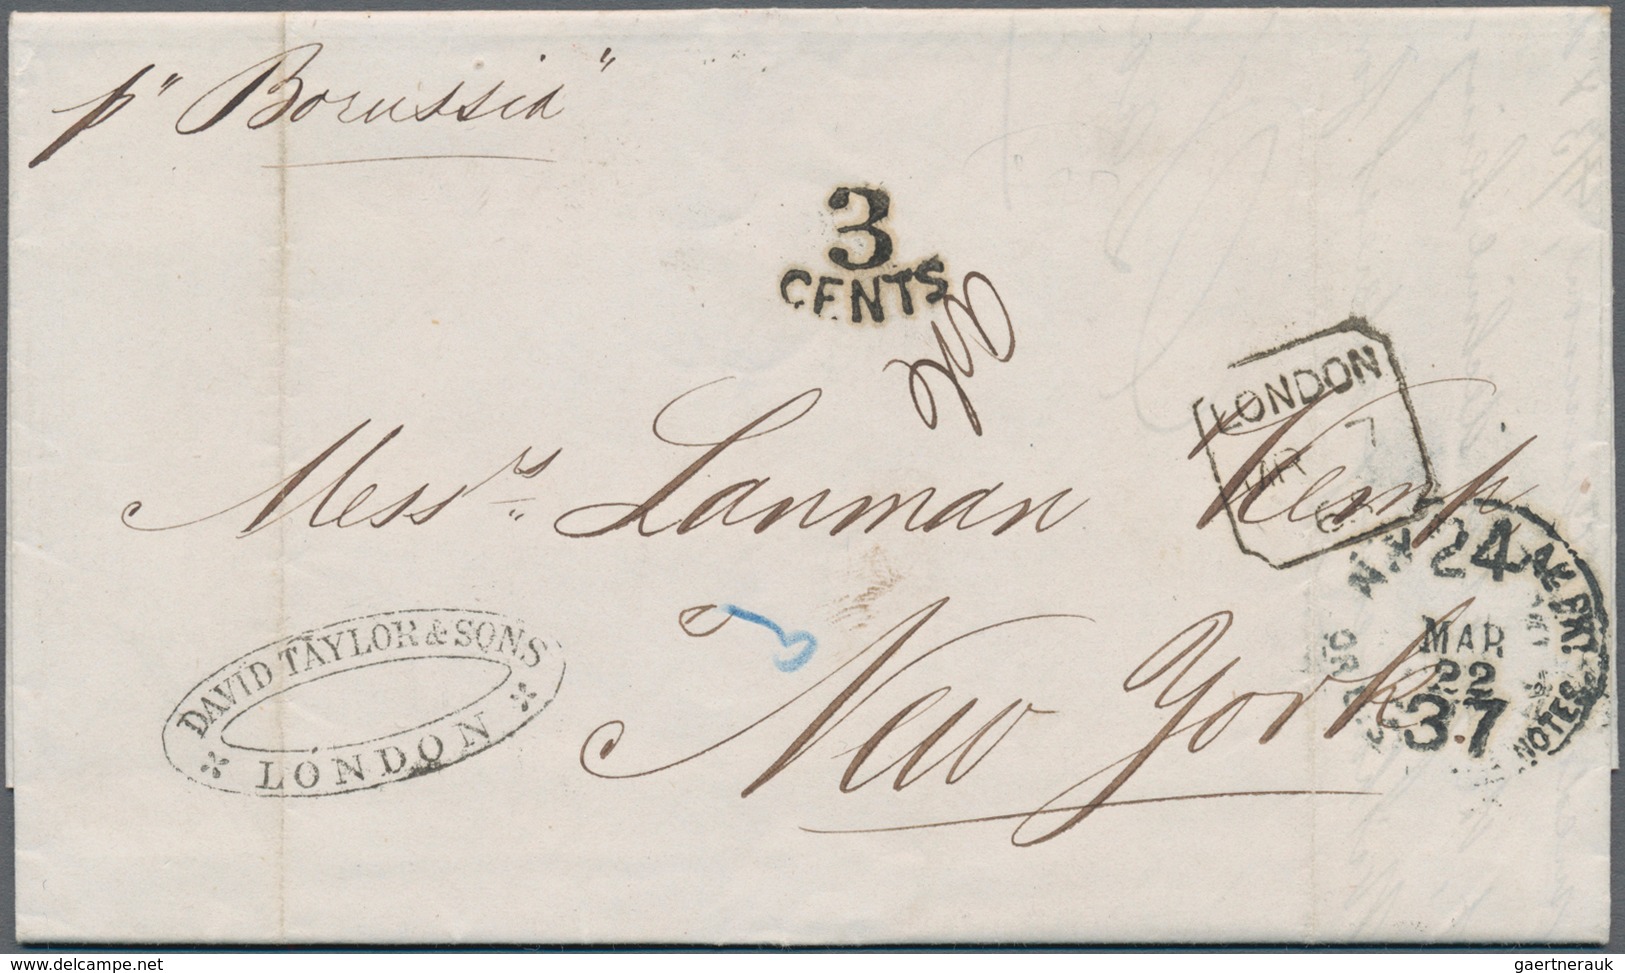 p" Borussia"
3
CENTS
LONDON
MR 7
Messrs. Lanman Kemp,
N.Y. 24 AM. PKT.
MAR
22
37
NOTES
New York
DAVID TAYLOR & SONS
LONDON
delcampe.net
gaertnerauk